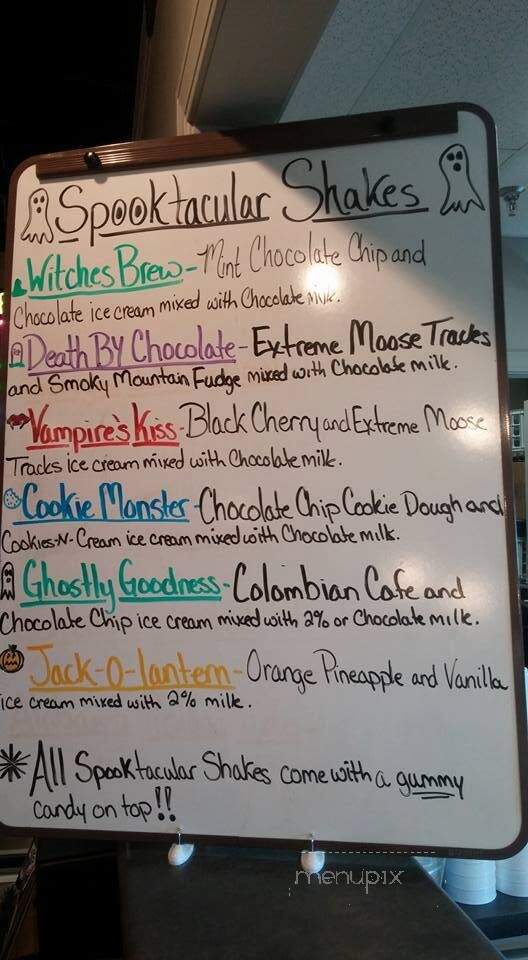 Spooktacular Shakes
Witches Brew - Mint Chocolate Chip and
Chocolate ice cream mixed with Chocolate Milk.
Death By Chocolate - Extreme Moose Tracks
and Smoky Mountain Fudge mixed with Chocolate milk.
Vampire's Kiss - Black Cherry and Extreme Moose
Tracks ice cream mixed with Chocolate milk.
Cookie Monster - Chocolate Chip Cookie Dough and
Cookies-N-Cream ice cream mixed with Chocolate milk.
Ghostly Goodness - Colombian Cafe and
Chocolate Chip ice cream mixed with 2% or Chocolate milk.
Jack-O-lantern - Orange Pineapple and Vanilla
ice cream mixed with 2% milk.
* All Spooktacular Shakes come with a gummy
candy on top!!
menupix